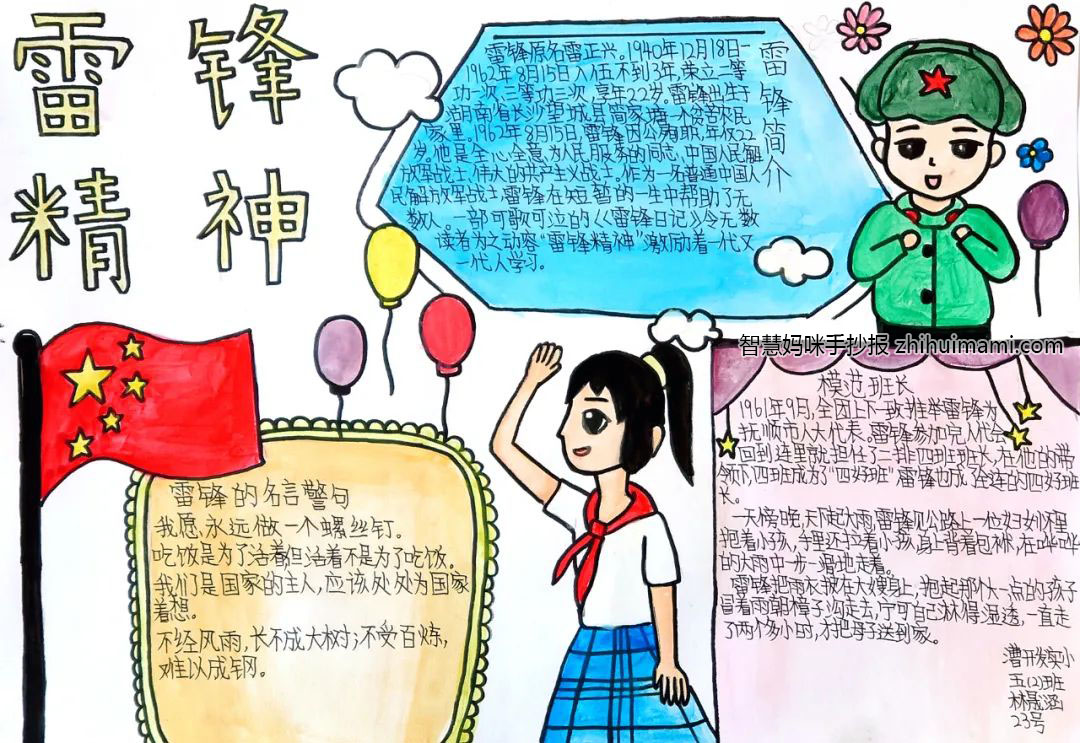 雷锋
精神
雷锋简介
雷锋原名雷正兴。1940年12月18日-
1962年8月15日入伍不到3年,荣立二等
功一次,三等功三次,享年22岁。雷锋出生于
湖南省长沙望城县简家塘一个贫苦农民
家里。1962年8月15日,雷锋因公殉职,年仅22
岁。他是全心全意为人民服务的同志,中国人民解
放军战士,伟大的共产主义战士。作为一名普通中国人
民解放军战士,雷锋在短暂的一生中帮助了无
数人。一部可歌可泣的《雷锋日记》令无数
读者为之动容“雷锋精神”激励着一代又
一代人学习。
智慧妈咪手抄报 zhihuimami.com
雷锋的名言警句
我愿永远做一个螺丝钉。
吃饭是为了活着,但活着不是为了吃饭。
我们是国家的主人,应该处处为国家
着想。
不经风雨,长不成大树;不受百炼,
难以成钢。
模范班长
1961年9月,全团上下一致推举雷锋为
抚顺市人大代表。雷锋参加完人代会
回到连里就担任了二排四班班长,在他的带
领下,四班成为了“四好班”雷锋也成全连的四好班
长。
一天傍晚,天下起大雨,雷锋见公路上一位妇女怀里
抱着小孩,手里还拉着小孩,身上背着包袱,在哗哗
的大雨中一步一滑地走着。
雷锋把雨衣披在大嫂身上,抱起那个大一点的孩子
冒着雨朝樟子沟走去,宁可自己淋得湿透,一直走
了两个多小时,才把母子送到家。
漕开发实小
五(2)班
23号